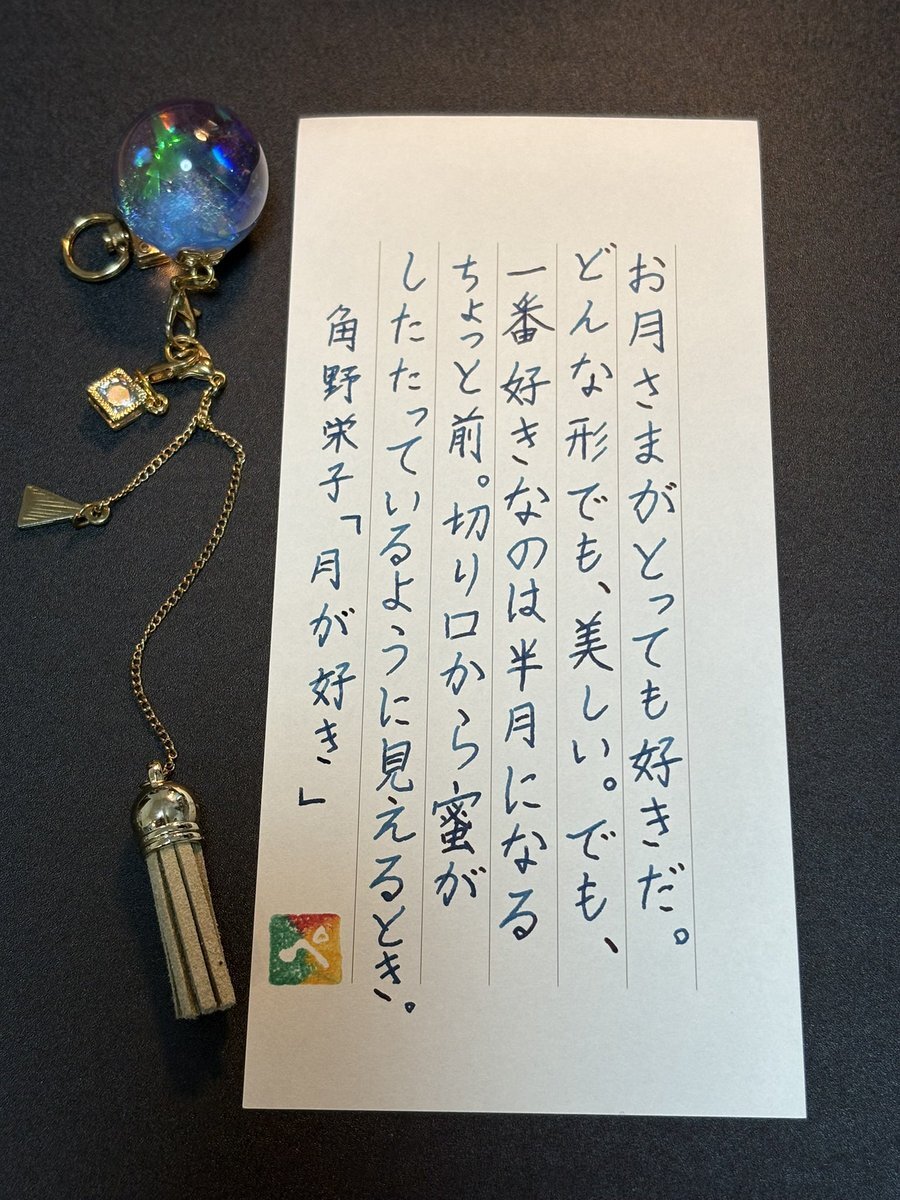 お月さまがとっても好きだ。
どんな形でも、美しい。でも、
一番好きなのは半月になる
ちょっと前。切り口から蜜が
したたっているように見えるとき。
角野栄子「月が好き」
ぺ